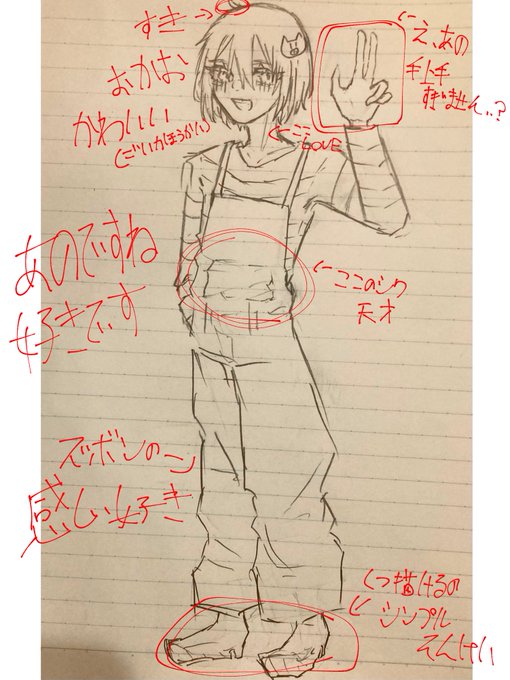 すき→
え、あの
手上手
すぎません..?
おかお
かわいい
(ごいかほうかい)
←ここLOVE
あのですね
好きです
←ここのシワ
天才
ズボンのこ
感じ好き
くつ描けるの
シンプル
そんけい